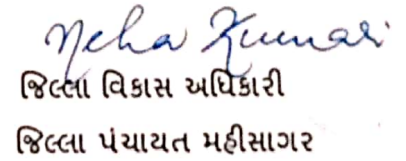 Neha Kumari
જિલ્લા વિકાસ અધિકારી
જિલ્લા પંચાયત મહીસાગર